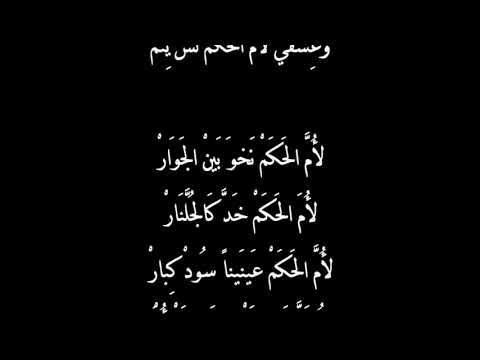 وَعِشْقِي لَأُمّ الحَكَمْ لَسْ يِتمْ
لأُمَّ الحَكَمْ نَخوَ بَيَنْ الجَوَارْ
لأُمَ الحَكَمْ خَدَّ كَالجُلَّنَارْ
لأُمَّ الحَكَمْ عَيَنَيناً سُودْ كِبارْ